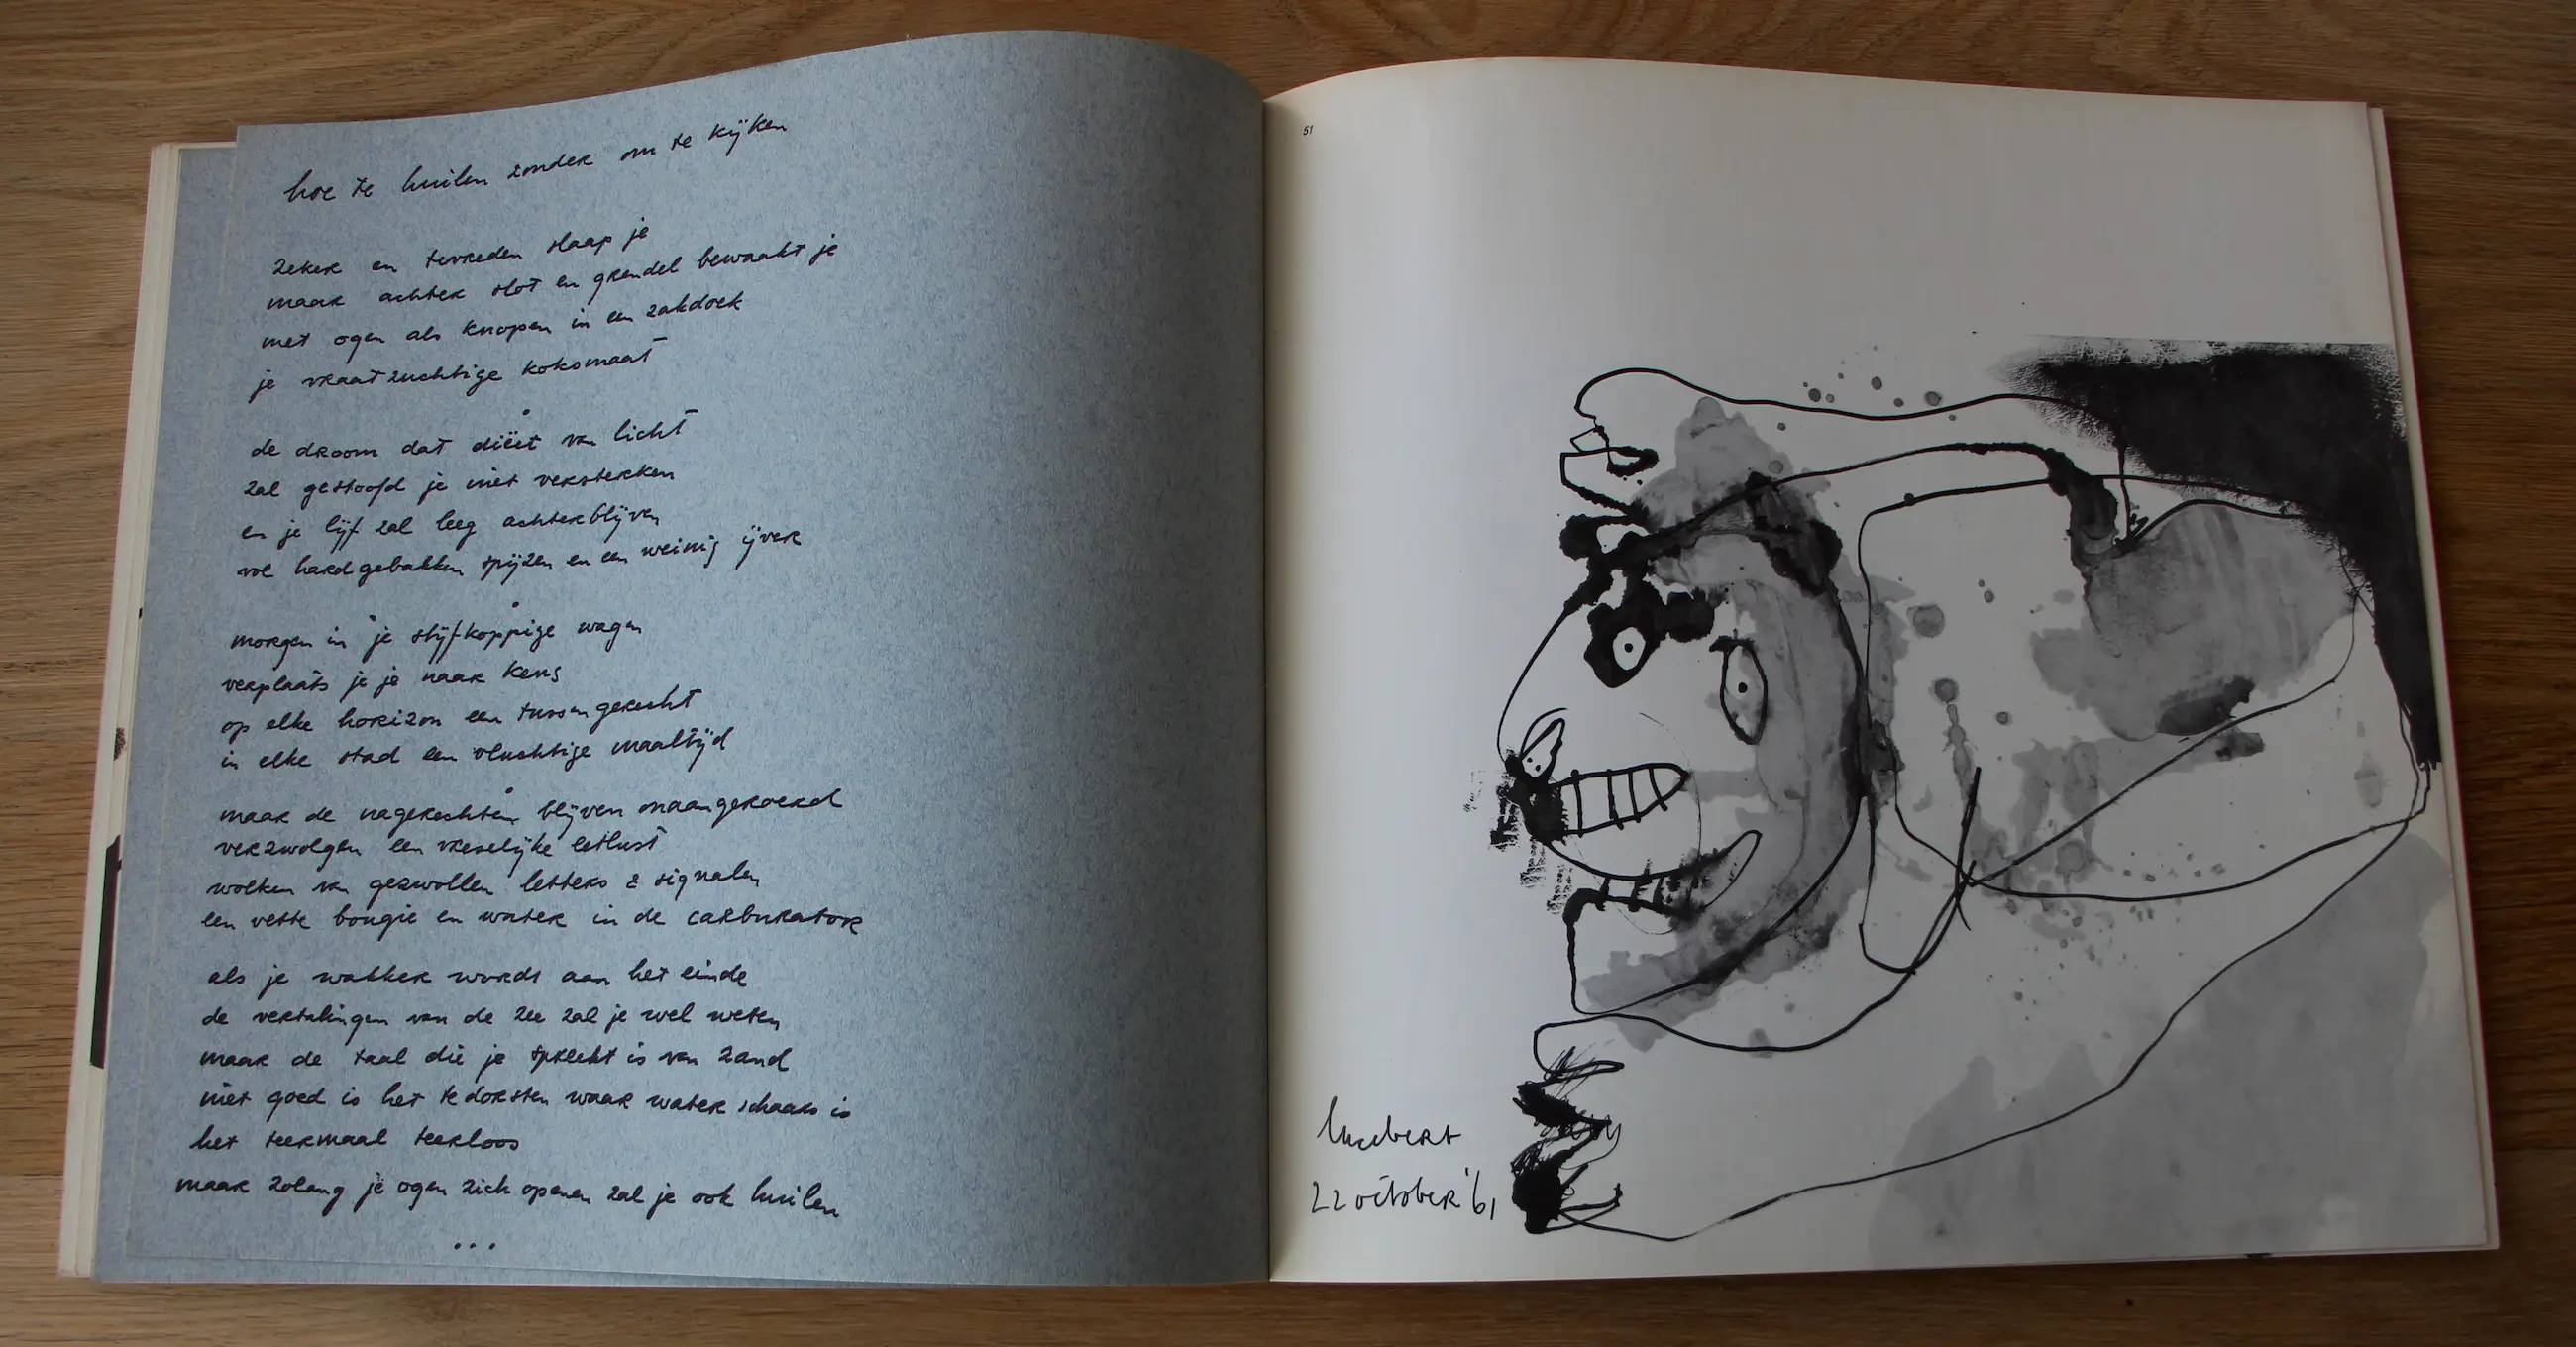 hoe te huilen zonder om te kijken
zeker en tevreden slaap je
maar achter slot en grendel bewaakt je
met ogen als knopen in een zakdoek
je vraatzuchtige koksmaat
de droom dat diëet van licht
zal gestoofd je niet versterken
en je lijf zal leeg achterblijven
vol hardgebakken spijzen en een weinig ijver
morgen in je stijfkoppige wagen
verplaats je je naar kens
op elke horizon een tussengerecht
in elke stad een vluchtige maaltijd
maar de nagerechten blijven onaangeroerd
verzwolgen een vreselijke eetlust
wolken van gezwollen letters & signalen
een vette bougie en water in de carburator
als je wakker wordt aan het einde
de vertalingen van de zee zal je wel weten
maar de taal die je spreekt is van zand
niet goed is het te dorsten waar water schaars is
het teermaal teerloos
maar zolang je ogen zich openen zal je ook huilen
...
51
lucebert
22 october '61